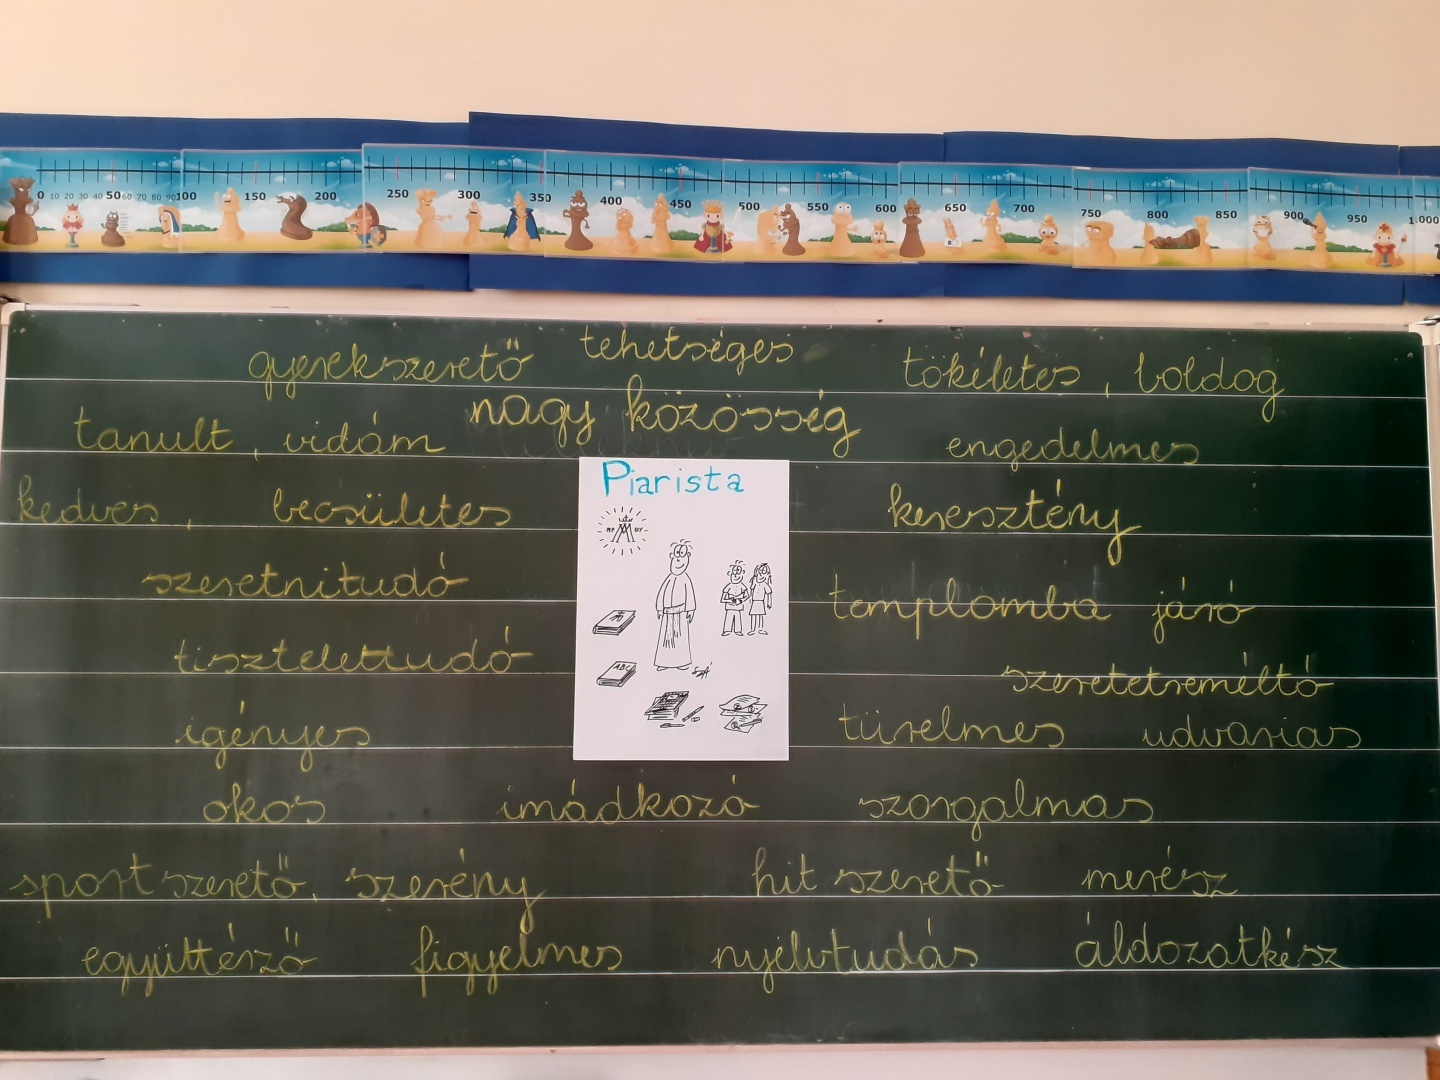 0 10 20 30 40 50 60 70 80 90 100 150 200 250 300 350 400 450 500 550 600 650 700 750 800 850 900 950 1000
gyerekszerető tehetséges tökéletes, boldog
nagy közösség
tanult, vidám engedelmes
Piarista
kedves, becsületes keresztény
szeretnitudó templomba járó
ABC
tisztelettudó szeretetreméltó
igényes türelmes udvarias
okos imádkozó szorgalmas
sportszerető, szerény hit szerető merész
együttérző figyelmes nyelvtudás áldozatkész